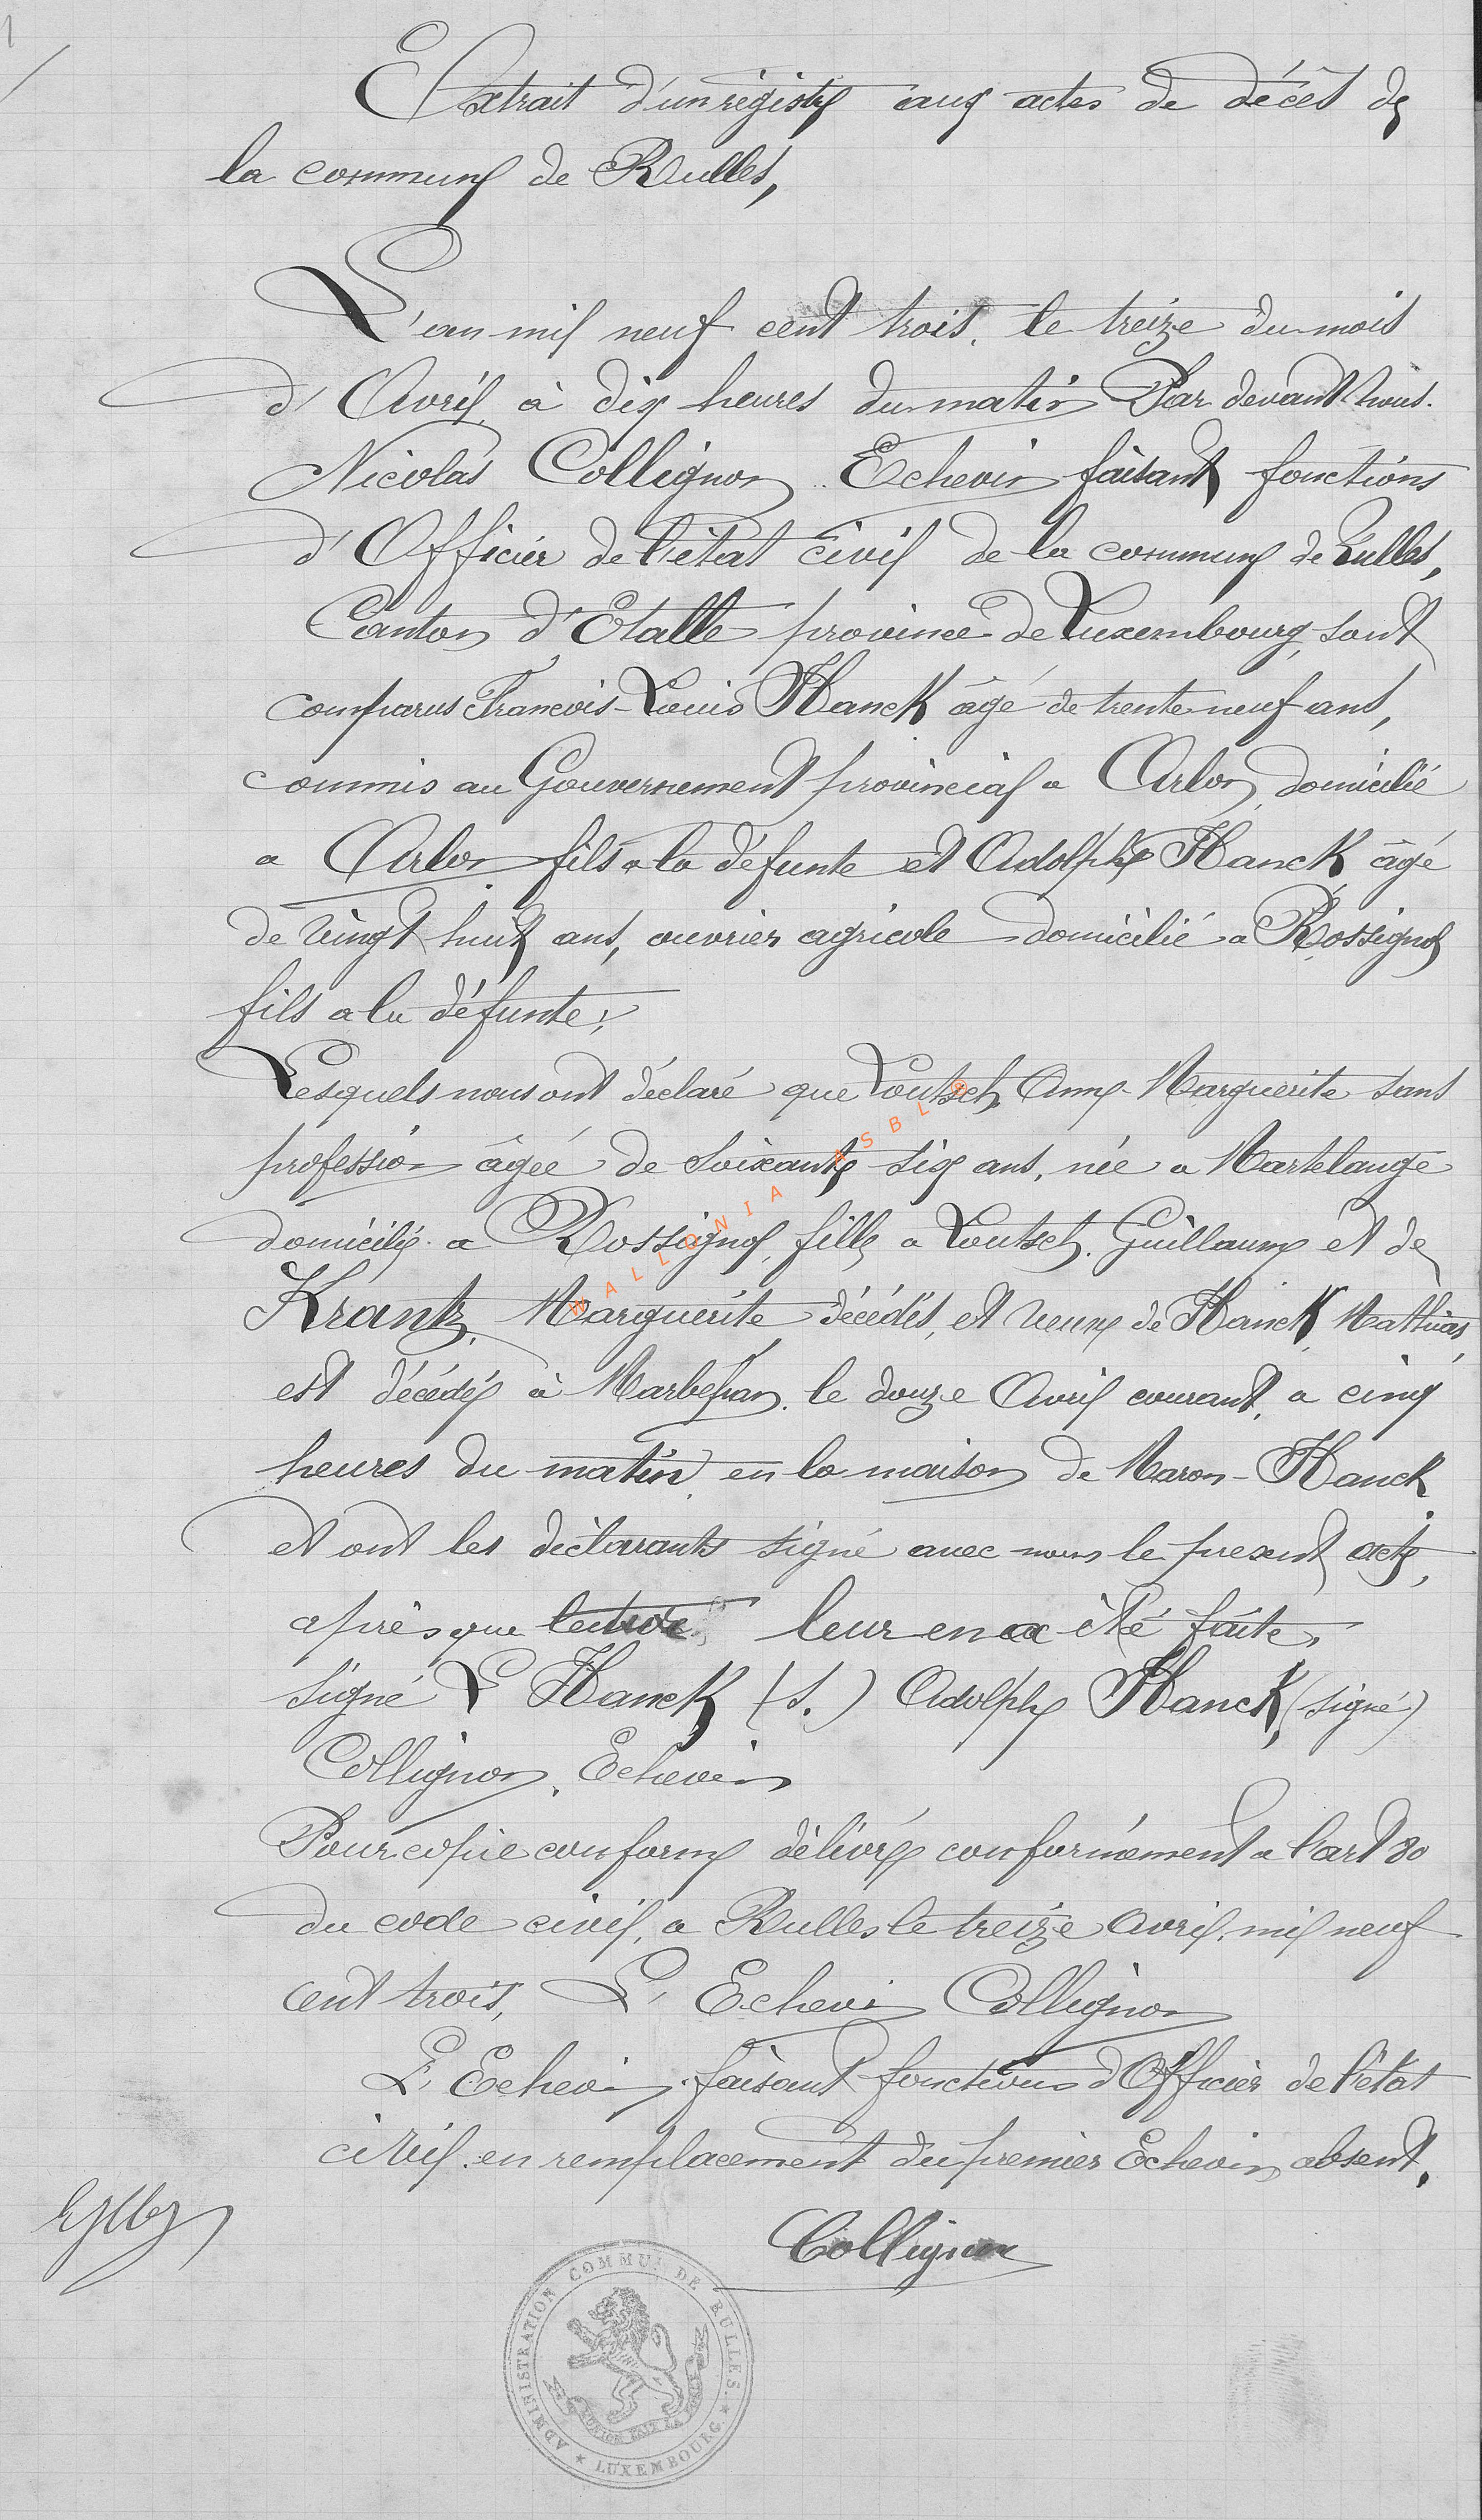 1
Extrait d'un registre aux actes de décès de
la commune de Rulles,
L'an mil neuf cent trois, le treize du mois
d'Avril, à dix heures du matin Par devant nous.
Nicolas Collignon Echevin faisant fonctions
d'Officier de l'état civil de la commune de Rulles,
Canton d'Etalle province de Luxembourg, sont
comparus Francois-Louis Hanck âgé de trente neuf ans,
commis au Gouvernement provincial a Arlon, domicilié
a Arlon fils a la défunte et Adolphe Hanck âgé
de vingt huit ans, ouvrier agricole domicilié a Rossignol
fils a la défunte;
Lesquels nous ont déclaré que Loutsch, Anne-Marguerite sans
profession âgée de soixante six ans, née a Martelange
domicilié a Rossignol, fille a Loutsch. Guillaume et de
Krantz, Marguerite décédés, et veuve de Hanck, Mathias,
est décédée à Marbehan, le douze Avril courant, a cinq
heures du matin, en la maison de Maron-Hanck
et ont les déclarants signé avec nous le present acte,
après que lecture leur en a été faite,
signé L Hanck (s.) Adolphe Hanck, (signé)
Collignon, Echevin
Pour copie conforme délivrée conformément a l'art 80
du code civil, a Rulles le treize Avril, mil neuf
cent trois, L'Echevin Collignon
L'Echevin faisant fonctions d'Officier de l'état
civil en remplacement du premier Echevin absent.
Collignon
ADMINISTRATION COMMU. DE RULLES. * LUXEMBOURG *
L'UNION FAIT LA FORCE
WALLONIA ASBL ©